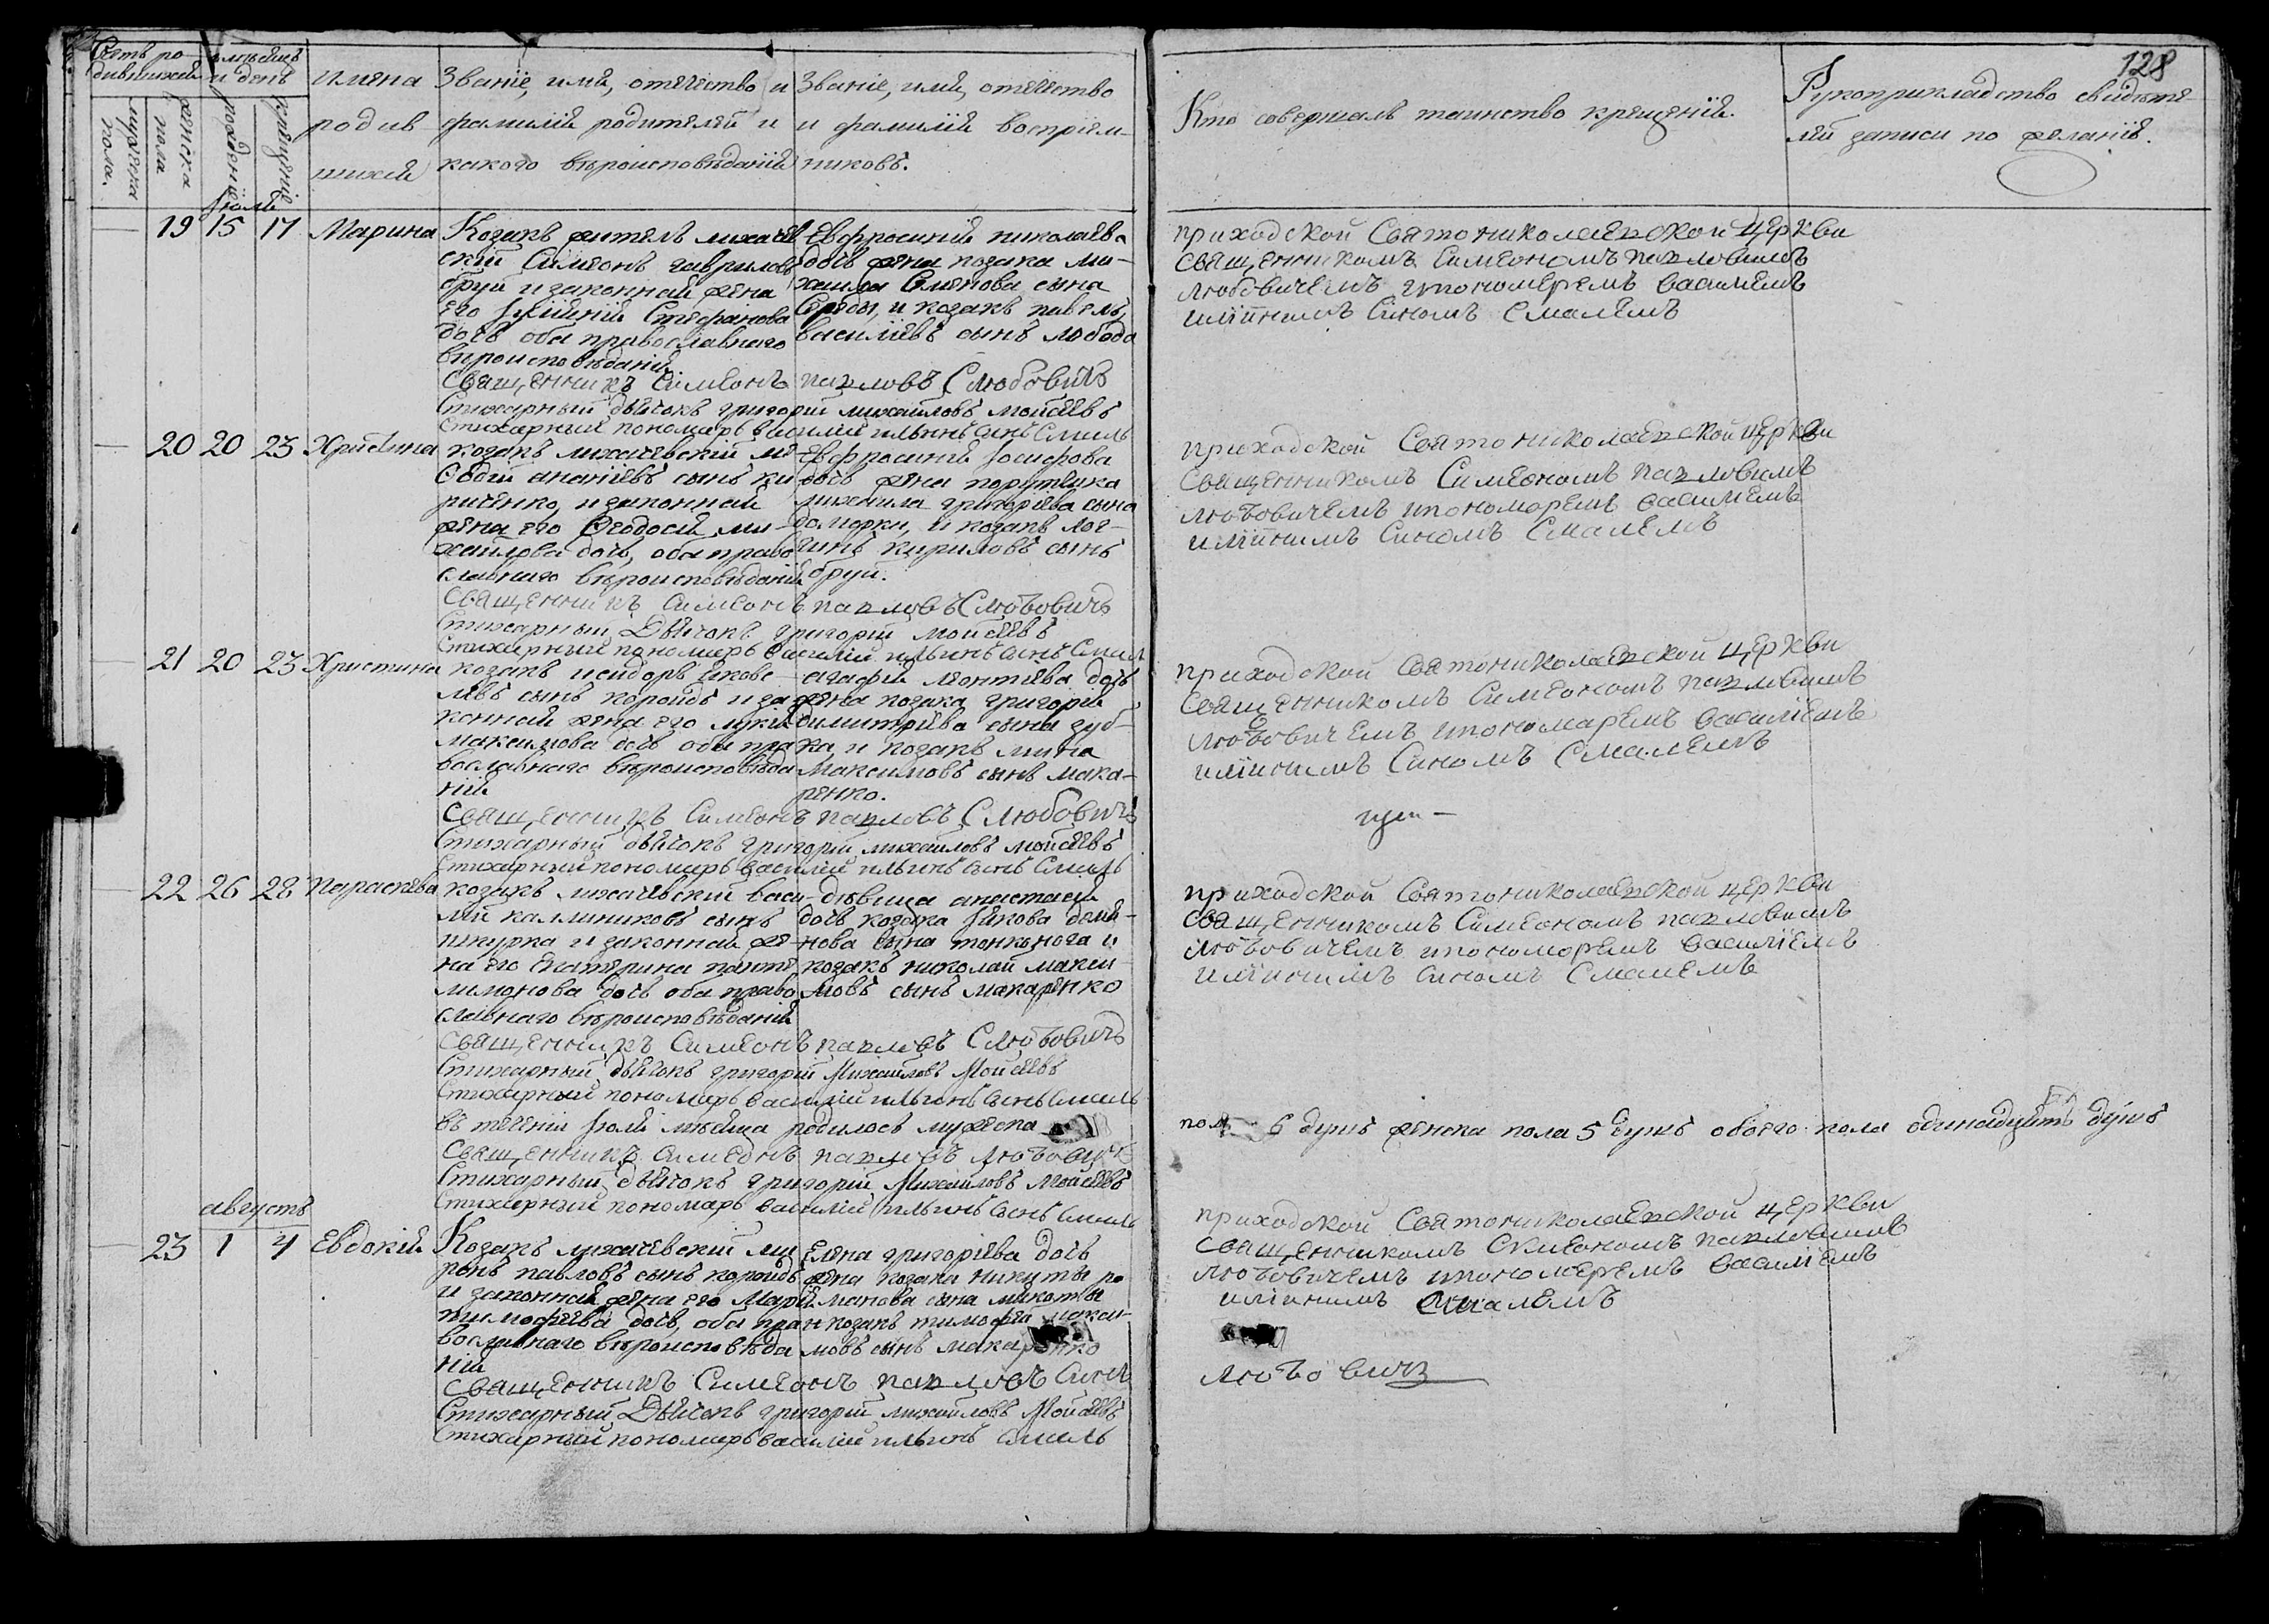 128
Счетъ ро-
дившихся
мѣсяцъ
и день
мужеска
пола.
женска
пола
рожденіе
крещеніе
имена
родив-
шихся
Званіе, имя, отечество и
фамилія родителей и
какого вѣроисповѣданія
Званіе, имя, отечество
и фамилія воспріем-
никовъ.
Кто совершалъ таинство крещенія.
Рукоприкладство свидѣте-
лей записи по желанію.
Іюль
19 15 17 Марина
Козакъ житель лихачев
скій Симеонъ гавриловъ
бруй и законная жена
его Іулианія Стефанова
дочь оба православнаго
вѣроисповѣданія
Евфросинія николаева
дочь жена козака ми-
хаила Семенова сына
Середы, и козакъ павелъ
василіевъ сынъ лобода
приходской Святониколаевской церкви
священникомъ Симеономъ павловимъ
любовичемъ ипономеремъ василиемъ
иліинимъ Синомъ Смалемъ
Священникъ Симеонъ павловъ С любовичъ
Стихарный дьячокъ григорій михайловъ мойсеевъ
Стихарний пономарь василій ильинъ Синъ Смаль
20 20 23 Христина
козакъ лихачевскій ме
Ѳодій ананіевъ сынъ ки
риченко, и законная
жена его Ѳеодосія ми-
хайлова дочь, оба право
славнаго вѣроисповѣданія
Евфросинія Іосифова
дочь жена порутчика
михаила григоріева сына
, и козакъ лог-
гинъ кириловъ сынъ
бруй.
приходской Святониколаевской церкви
Священникомъ Симеономъ павловимъ
любовичемъ ипономоремъ василиемъ
иліинимъ Синомъ Смалемъ
Священникъ Симеонъ павловъ С любовичъ
Стихарный Дьячокъ григорій мойсеевъ
Стихарний пономарь василій ильинъ Синъ Смал
21 20 23 Христина
козакъ исидоръ яковле
левъ сынъ короидъ и за
конная жена его лукія
Максимова дочь оба пра
вославнаго вѣроисповѣда
нія
агафія леонтіева дочь
жена козака григорія
димитріева сына зуб-
ка, и козакъ мина
Максимовъ сынъ мака-
ренко.
приходской Святониколаевской церкви
Священникомъ Симеономъ павловимъ
любовичемъ ипономаремъ василіемъ
иліинимъ Синомъ Смалемъ
Священникъ Симеонъ павловъ С любовичъ
Стихарный дьячокъ григорій михайловъ мойсеевъ
Стихарний пономарь василій ильинъ Синъ Смаль
22 26 28 Параскева
козакъ лихачевскій васи-
лій каллиниковъ сынъ
шкурка и законная же-
на его Екатерина панте
лимонова дочь оба право
славнаго вѣроисповѣданія
дѣвица анастасія
дочь козака Іякова деми-
нова сына тонконога и
козакъ николай макси
мовъ сынъ макаренко
приходской Святониколаевской церкви
Священникомъ Симеономъ павловимъ
любовичемъ ипономоремъ василіемъ
иліинимъ Синомъ Смалемъ
Священникъ Симеонъ павловъ С любовичъ
Стихарный дьячокъ григорій Михайловъ Мойсеевъ
Стихарний пономарь василій ильинъ Синъ Смаль
въ теченіи Іюля мѣсяца родилось мужеска
пола 6 душъ женска пола 5 душъ обоего пола одинадцать душъ
Священникъ Симеонъ павловъ любовичъ
Стихарный дьячокъ григорій Михайловъ Мойсеевъ
Стихарний пономарь василій ильинъ Синъ Смаль
августъ
23 1 4 Евдокія
Козакъ лихачевскій ми
ронъ павловъ сынъ короидъ
и законная жена его Марія
тимофеева дочь, оба пра
вославнаго вѣроисповѣда
нія
Елена григоріева дочь
жена козака никиты ро
манова сына микоты
и козакъ тимофей макси-
мовъ сынъ макаренко
приходской Святониколаевской церкви
Священникомъ Симеономъ павловимъ
любовичемъ ипономеремъ василіемъ
иліинимъ Смалемъ
любовичъ
Священникъ Симеонъ павловъ Синъ
Стихарный Дьячокъ григорій михайловъ Мойсеевъ
Стихарний пономарь василій ильинъ Смаль